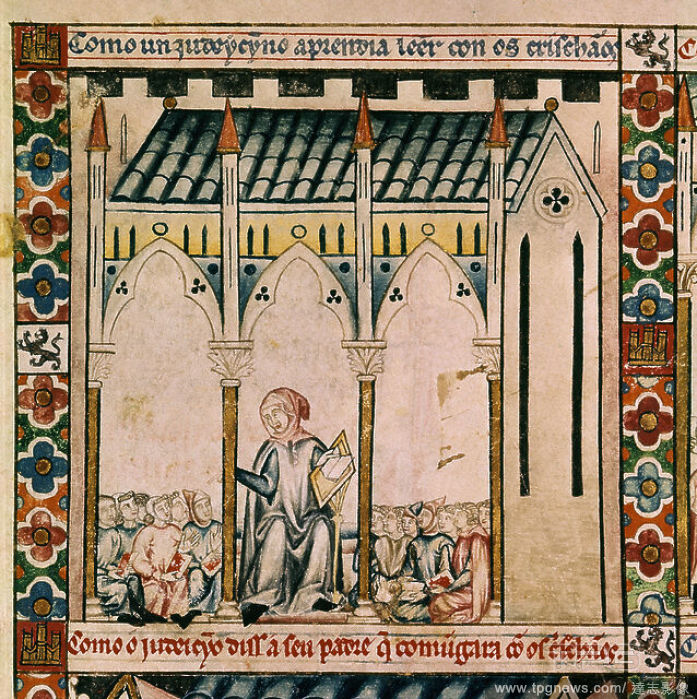 Como un iudeucyno aprendia leer con os crischãos
Como o iudeucyõ diss a seu padre q̃ comũgara cõ os crischãos.
www.tpgnews.com/ 達志影像